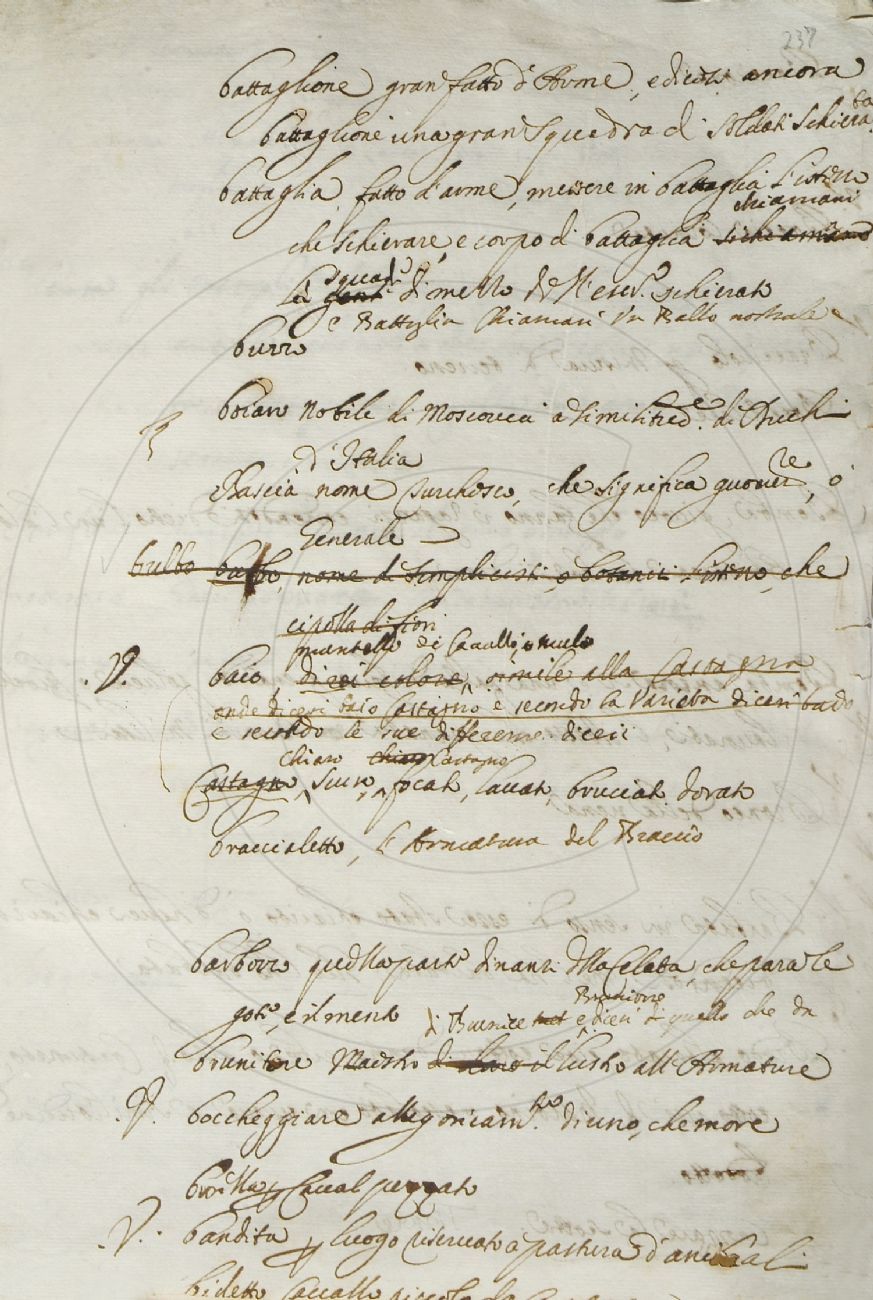 237
battaglione gran fatto d'Arme, e dicesi ancora
battaglione una gran squadra di soldati schiera
ta
battaglia fatto d'arme, mettere in battaglia l'istesso
chiamasi
che schierare, e corpo di battaglia si chiamano
squad.e
la gente di mezzo dell'eser.o schierato
e Battaglia chiamasi un Ballo nostrale
burro
boiaro Nobile di Moscovia a similitud.e di Duchi
d'Italia
Bascià nome Turchesco, che significa guover.re, ò
Generale
bulbo bulbo, nome di semplicisti, o botanici l'istesso, che
cipolla di fiori
mantello di Cavalli, o mulo
.V. baio, di coi colore, simile alla Castagna
onde dicesi baio Castagno e secondo la varietà dicesi baio
e secondo le sue differenze dicesi
chiaro chiaro Castagno
Castagno, scuro, focato, lavato, bruciato dorato
braccialetto, l'Armatura del Braccio
barbozzo quella parte dinanzi della Celata, che para le
gote, e il mento
di Brunice e dicesi di quello che da
Brunitore
brunitore Maestro di dare il lustro all'Armature
.V. boccheggiare allegoricam.te di uno, che more
brozella Caval pezzato
.V. bandita luogo riservato a pastura d'animali
bidetto Cavallo piccolo da